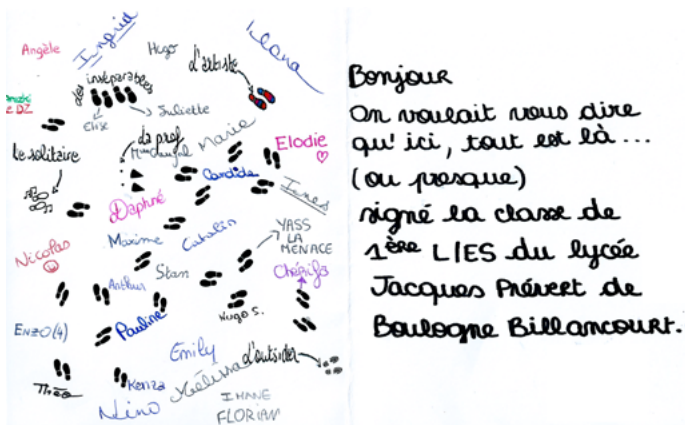 Angèle
Ingrid
Hugo
l'artiste
Ileana
les inséparables
Elise
Juliette
Le solitaire
La prof
Marie
Elodie
Candide
Ines
Daphné
Maxime
Catalin
YASS
LA
MENACE
Nicolas
Stan
Chérifa
Arthur
Hugo S.
ENZO(4)
Pauline
Emily
l'outsider
Théo
Kenza
Mélissa
Nino
IMANE
FLORIAN
Bonjour
On voulait vous dire
qu'ici, tout est là ...
(ou presque)
signé la classe de
1ère L/ES du lycée
Jacques Prévert de
Boulogne Billancourt.